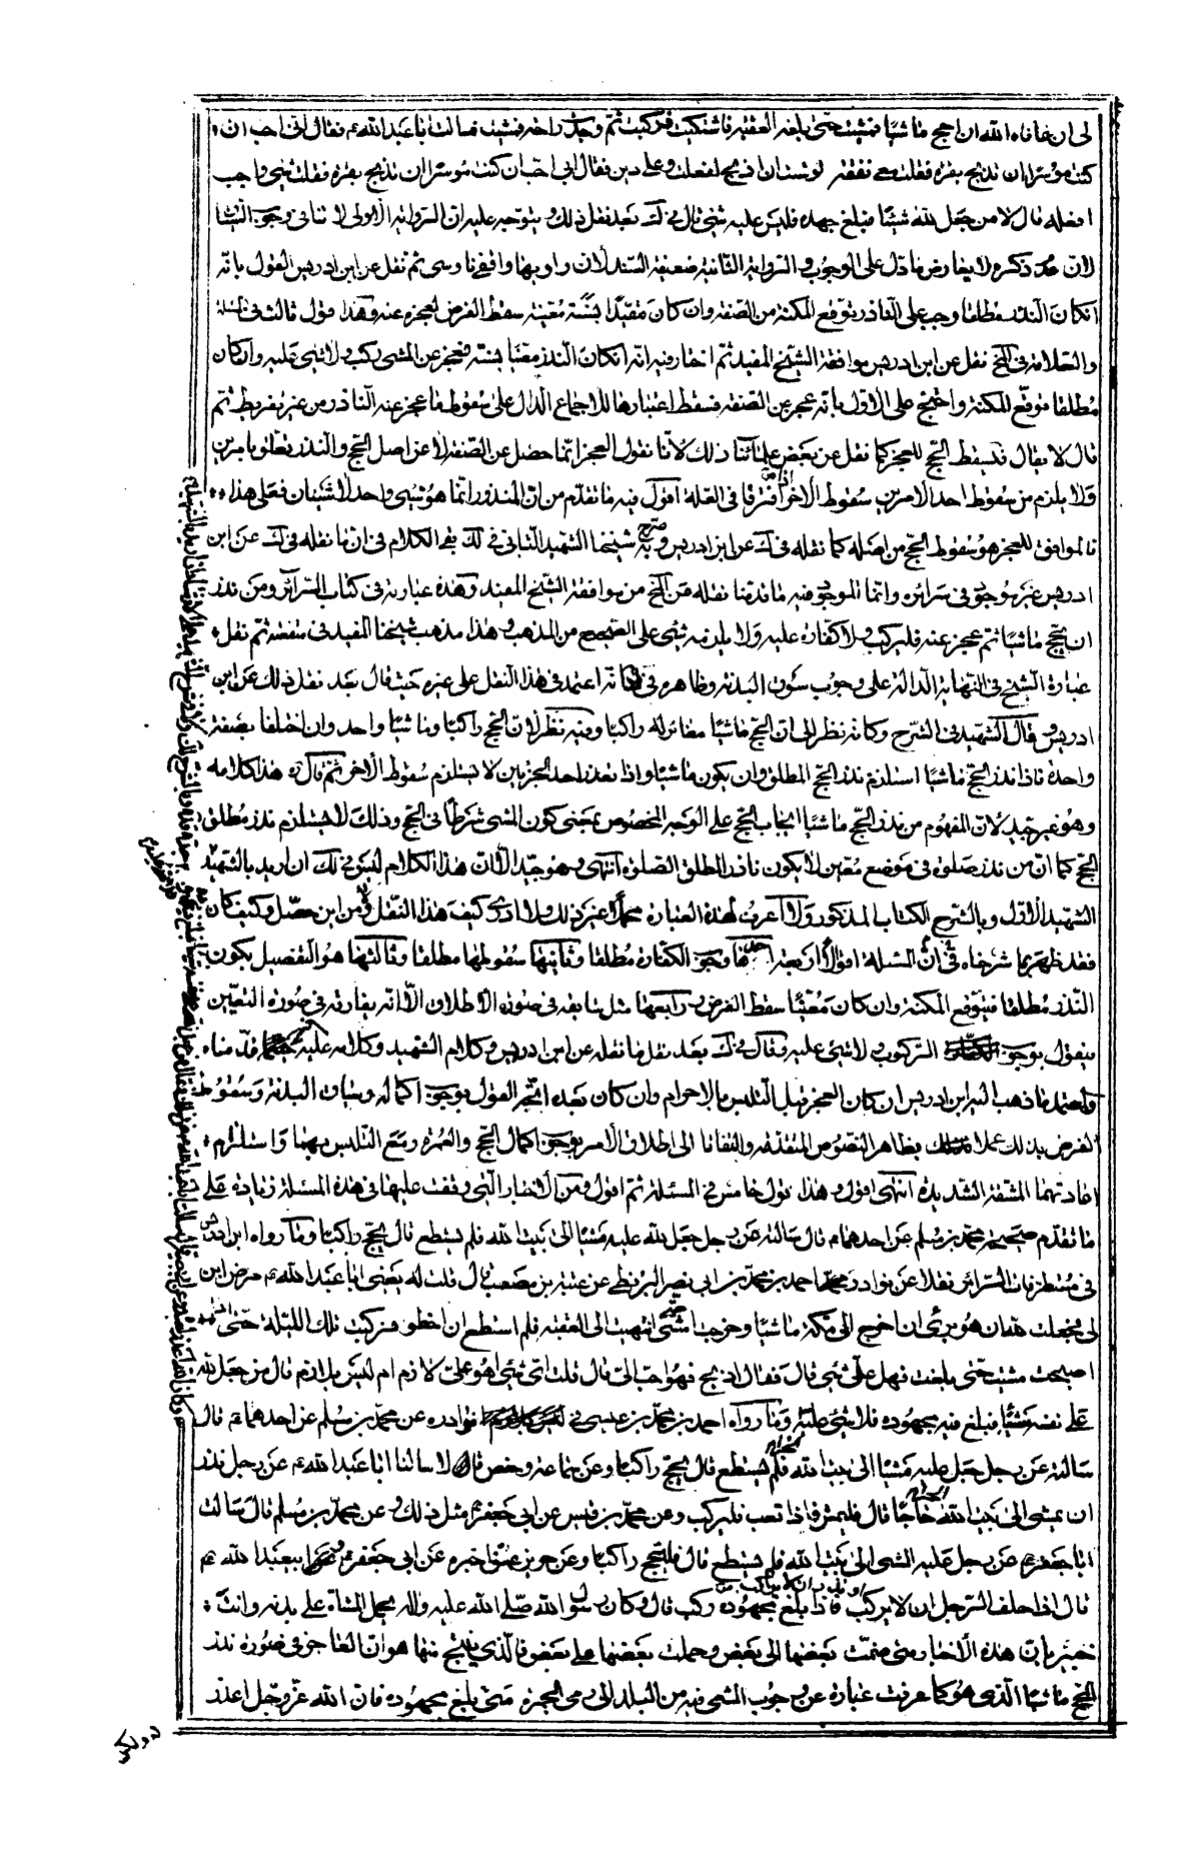 لى ان عافاه الله ان احج ماشيا فمشيت حتى بلغت العقبة فاشتكيت فركبت ثم وجدت راحة فمشيت فسالت ابا عبد الله ع فقال انى احب ان
كنت موسرا ان تذبح بقرة فقلت معى نفقة ولو شئت ان اذبح لفعلت وعلى دين فقال انى احب ان كنت موسرا ان تذبح بقرة فقلت شىء واجب
افعله قال لا من جعل لله شيئا فبلغ جهده فليس عليه شىء قال فى ك بعد نقل ذلك ويتوجه عليه ان الرواية الاولى لا تنافى وجوب السياق
لان عدم ذكره لا يعارض ما دل على الوجوب والرواية الثانية ضعيفة السند لان راويها واقفى ناووسى ثم نقل عن ابن ادريس القول بانه
ان كان النذر مطلقا وجب على الناذر توقع المكنة من الصفة وان كان مقيدا بسنة معينة سقط الفرض لعجزه عنه وهذا قول ثالث فى المسئلة
والعلامة فى لف نقل عن ابن ادريس موافقة الشيخ المفيد ثم اختار فيه انه ان كان النذر معينا بسنة فعجز عن المشى ركب ولا شىء عليه وان كان
مطلقا توقع المكنة واحتج على الاول بانه عجز عن الصفة فسقط اعتبارها للاجماع الدال على سقوط ما عجز عنه الناذر من غير تفريط ثم
قال لا يقال فليسقط الحج للعجز كما نقل عن بعض علمائنا ذلك لانا نقول العجز انما حصل عن الصفة لا عن اصل الحج والنذر تعلق بامرين
ولا يلزم من سقوط احد الامرين سقوط الاخر افترقا فى العلة اقول فيه ما تقدم من ان المنذور انما هو شىء واحد لا شيئان فعلى هذا
فالموافق للعجز هو سقوط الحج من اصله كما نقله فى ك عن ابن ادريس وصرح به شيخنا الشهيد الثانى فى لك بقى الكلام فى ان ما نقله فى ك عن ابن
ادريس غير موجود فى سرائره وانما الموجود فيه ما قدمنا نقله عن لف من موافقة الشيخ المفيد وهذه عبارته فى كتاب السرائر ومن نذر
ان يحج ماشيا ثم عجز عنه فليركب ولا كفارة عليه ولا يلزمه شىء على الصحيح من المذهب وهذا مذهب شيخنا المفيد فى مقنعته ثم نقل
عبارة الشيخ فى النهاية الدالة على وجوب سوق البدنة وظاهره فى ك انه اعتمد فى هذا النقل على غيره حيث قال بعد نقل ذلك عن ابن
ادريس قال الشهيد فى الشرح وكانه نظر الى ان الحج ماشيا مغاير له راكبا وفيه نظر لان الحج راكبا وماشيا واحد وان اختلفا بصفة
واحدة فاذا نذر الحج ماشيا استلزم نذر الحج المطلق وان يكون ماشيا واذا تعذر احد الجزئين لا يستلزم سقوط الاخر ثم قال ره هذا كلامه
وهو غير جيد لان المفهوم من نذر الحج ماشيا ايجاب الحج على الوجه المخصوص بمعنى كون المشى شرطا فى الحج وذلك لا يستلزم نذر مطلق
الحج كما ان من نذر صلوة فى موضع معين لا يكون ناذرا لمطلق الصلوة انتهى وهو جيد الا ان هذا الكلام ليس فى لك ان اريد بالشهيد
الشهيد الاول وبالشرح الكتاب المذكور ولا اعرف لهذه العبارة محملا غير ذلك ولا ادرى كيف هذا النقل ومن اين حصل وكيف كان
فقد ظهر بما شرحناه فى ان المسئلة اقوالا اربعة احدها وجوب الكفارة مطلقا وثانيها سقوطها مطلقا وثالثها هو التفصيل بكون
النذر مطلقا فيتوقع المكنة وان كان معينا سقط الفرض ورابعها مثل سابقه فى صورة الاطلاق الا انه يفارقه فى صورة التعيين
فيقول بوجوب الركوب ولا شىء عليه وقال فى ك بعد نقل ما نقله عن ابن ادريس وكلام الشهيد وكلامه عليه كما قدمناه
والمعتمد ما ذهب اليه ابن ادريس ان كان العجز قبل التلبس بالاحرام وان كان بعده اتجه القول بوجوب اكماله وسياق البدنة وسقوط
الفرض بذلك عملا بظاهر النصوص المتقدمة والتفاتا الى اطلاق الامر بوجوب اكمال الحج والعمرة مع التلبس بهما واستلزام
اعادتهما المشقة الشديدة انتهى اقول وهذا قول خامس فى المسئلة ثم اقول ومن الاخبار التى وقفت عليها فى هذه المسئلة زيادة على
ما تقدم صحيحة محمد بن مسلم عن احدهما ع قال سالته عن رجل جعل لله عليه مشيا الى بيت الله فلم يستطع قال يحج راكبا وما رواه ابن ادريس
فى مستطرفات السرائر نقلا عن نوادر احمد بن محمد بن ابى نصر البزنطى عن عنبسة بن مصعب قال قلت له يعنى ابا عبد الله ع مرض ابن
لى فجعلت لله ان هو برئ ان اخرج الى مكة ماشيا وخرجت امشى حتى انتهيت الى العقبة فلم استطع ان اخطو فركبت تلك الليلة حتى اذا
اصبحت مشيت حتى بلغت فهل على شىء قال فقال اذبح فهو احب الى قال قلت اى شىء هو على لازم ام ليس بلازم قال من جعل لله
على نفسه شيئا فبلغ فيه مجهوده فلا شىء عليه وما رواه احمد بن محمد بن عيسى فى نوادره عن محمد بن مسلم عن احدهما ع قال
سالته عن رجل جعل عليه مشيا الى بيت الله الحرام فلم يستطع قال يحج راكبا وعن سماعة وحفص قال لا سالنا ابا عبد الله ع عن رجل نذر
ان يمشى الى بيت الله الحرام حاجا قال فليمش فاذا تعب فليركب وعن محمد بن قيس عن ابى جعفر ع مثل ذلك وعن محمد بن مسلم قال سالت
ابا جعفر ع عن رجل عليه المشى الى بيت الله فلم يستطع قال فليحج راكبا وعن حريز عمن اخبره عن ابى جعفر ع وابى عبد الله ع
قال اذا حلف الرجل ان لا يركب او نذر ان لا يركب فاذا بلغ مجهوده ركب قال وكان رسول الله صلى الله عليه واله يحمل المشاة على بدنه وانت
خبير بان هذه الاخبار متى ضمت بعضها الى بعض وحملت بعضها على بعض فالذى ينتج منها هو ان العاجز فى صورة نذر
الحج ماشيا الذى هو كما عرفت عبارة عن وجوب المشى فيه من البلد الى رمى الجمرة متى بلغ مجهوده فان الله عز وجل اعذر